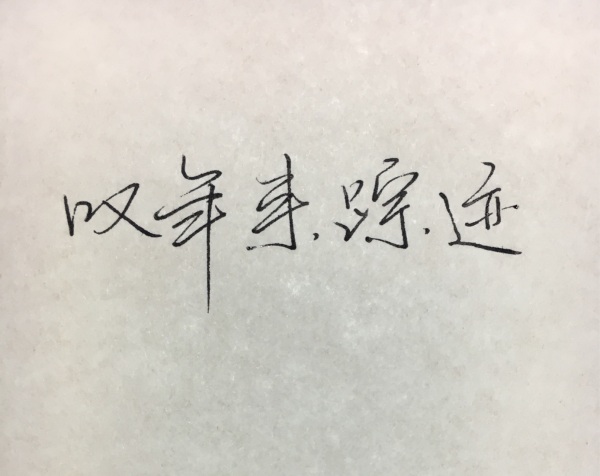 叹年来踪迹